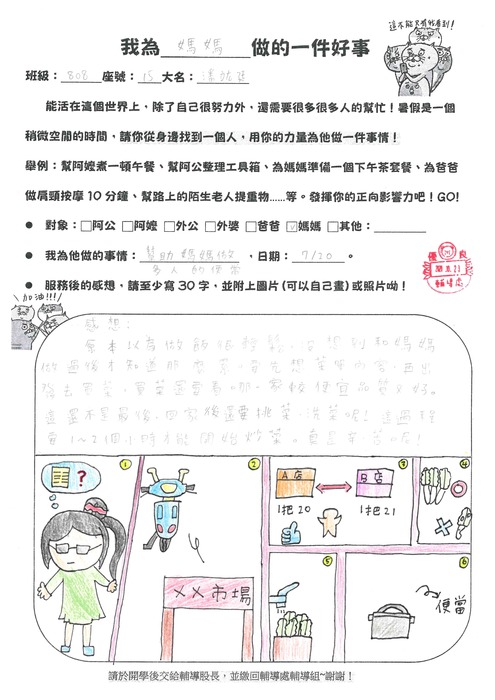 這不能只有我看到！
我為 媽媽 做的一件好事
班級：808 座號：15 大名：
能活在這個世界上，除了自己很努力外，還需要很多很多人的幫忙！暑假是一個
稍微空閒的時間，請你從身邊找到一個人，用你的力量為他做一件事情！
舉例：幫阿嬤煮一頓午餐、幫阿公整理工具箱、為媽媽準備一個下午茶套餐、為爸爸
做肩頸按摩 10 分鐘、幫路上的陌生老人提重物……等。發揮你的正向影響力吧！GO!
● 對象：□阿公 □阿嬤 □外公 □外婆 □爸爸 ☑媽媽 □其他：
● 我為他做的事情：幫助媽媽做多人的便當，日期：7/20。
優良
輔導處
● 服務後的感想，請至少寫 30 字，並附上圖片(可以自己畫)或照片呦！
加油!!!
感想：
原本以為做飯很輕鬆，沒想到和媽媽
做過後才知道那麼累。首先想菜單內容，再出
發去買菜，買菜還要看哪家較便宜品質又好。
這還不是最後，回家後還要挑菜、洗菜呢！這過程
要1~2個小時才能開始炒菜。真是辛苦呢！
① ?
② ××市場
③ A店 B店
1把20 1把21
④
⑤
⑥ 便當
請於開學後交給輔導股長，並繳回輔導處輔導組~謝謝！